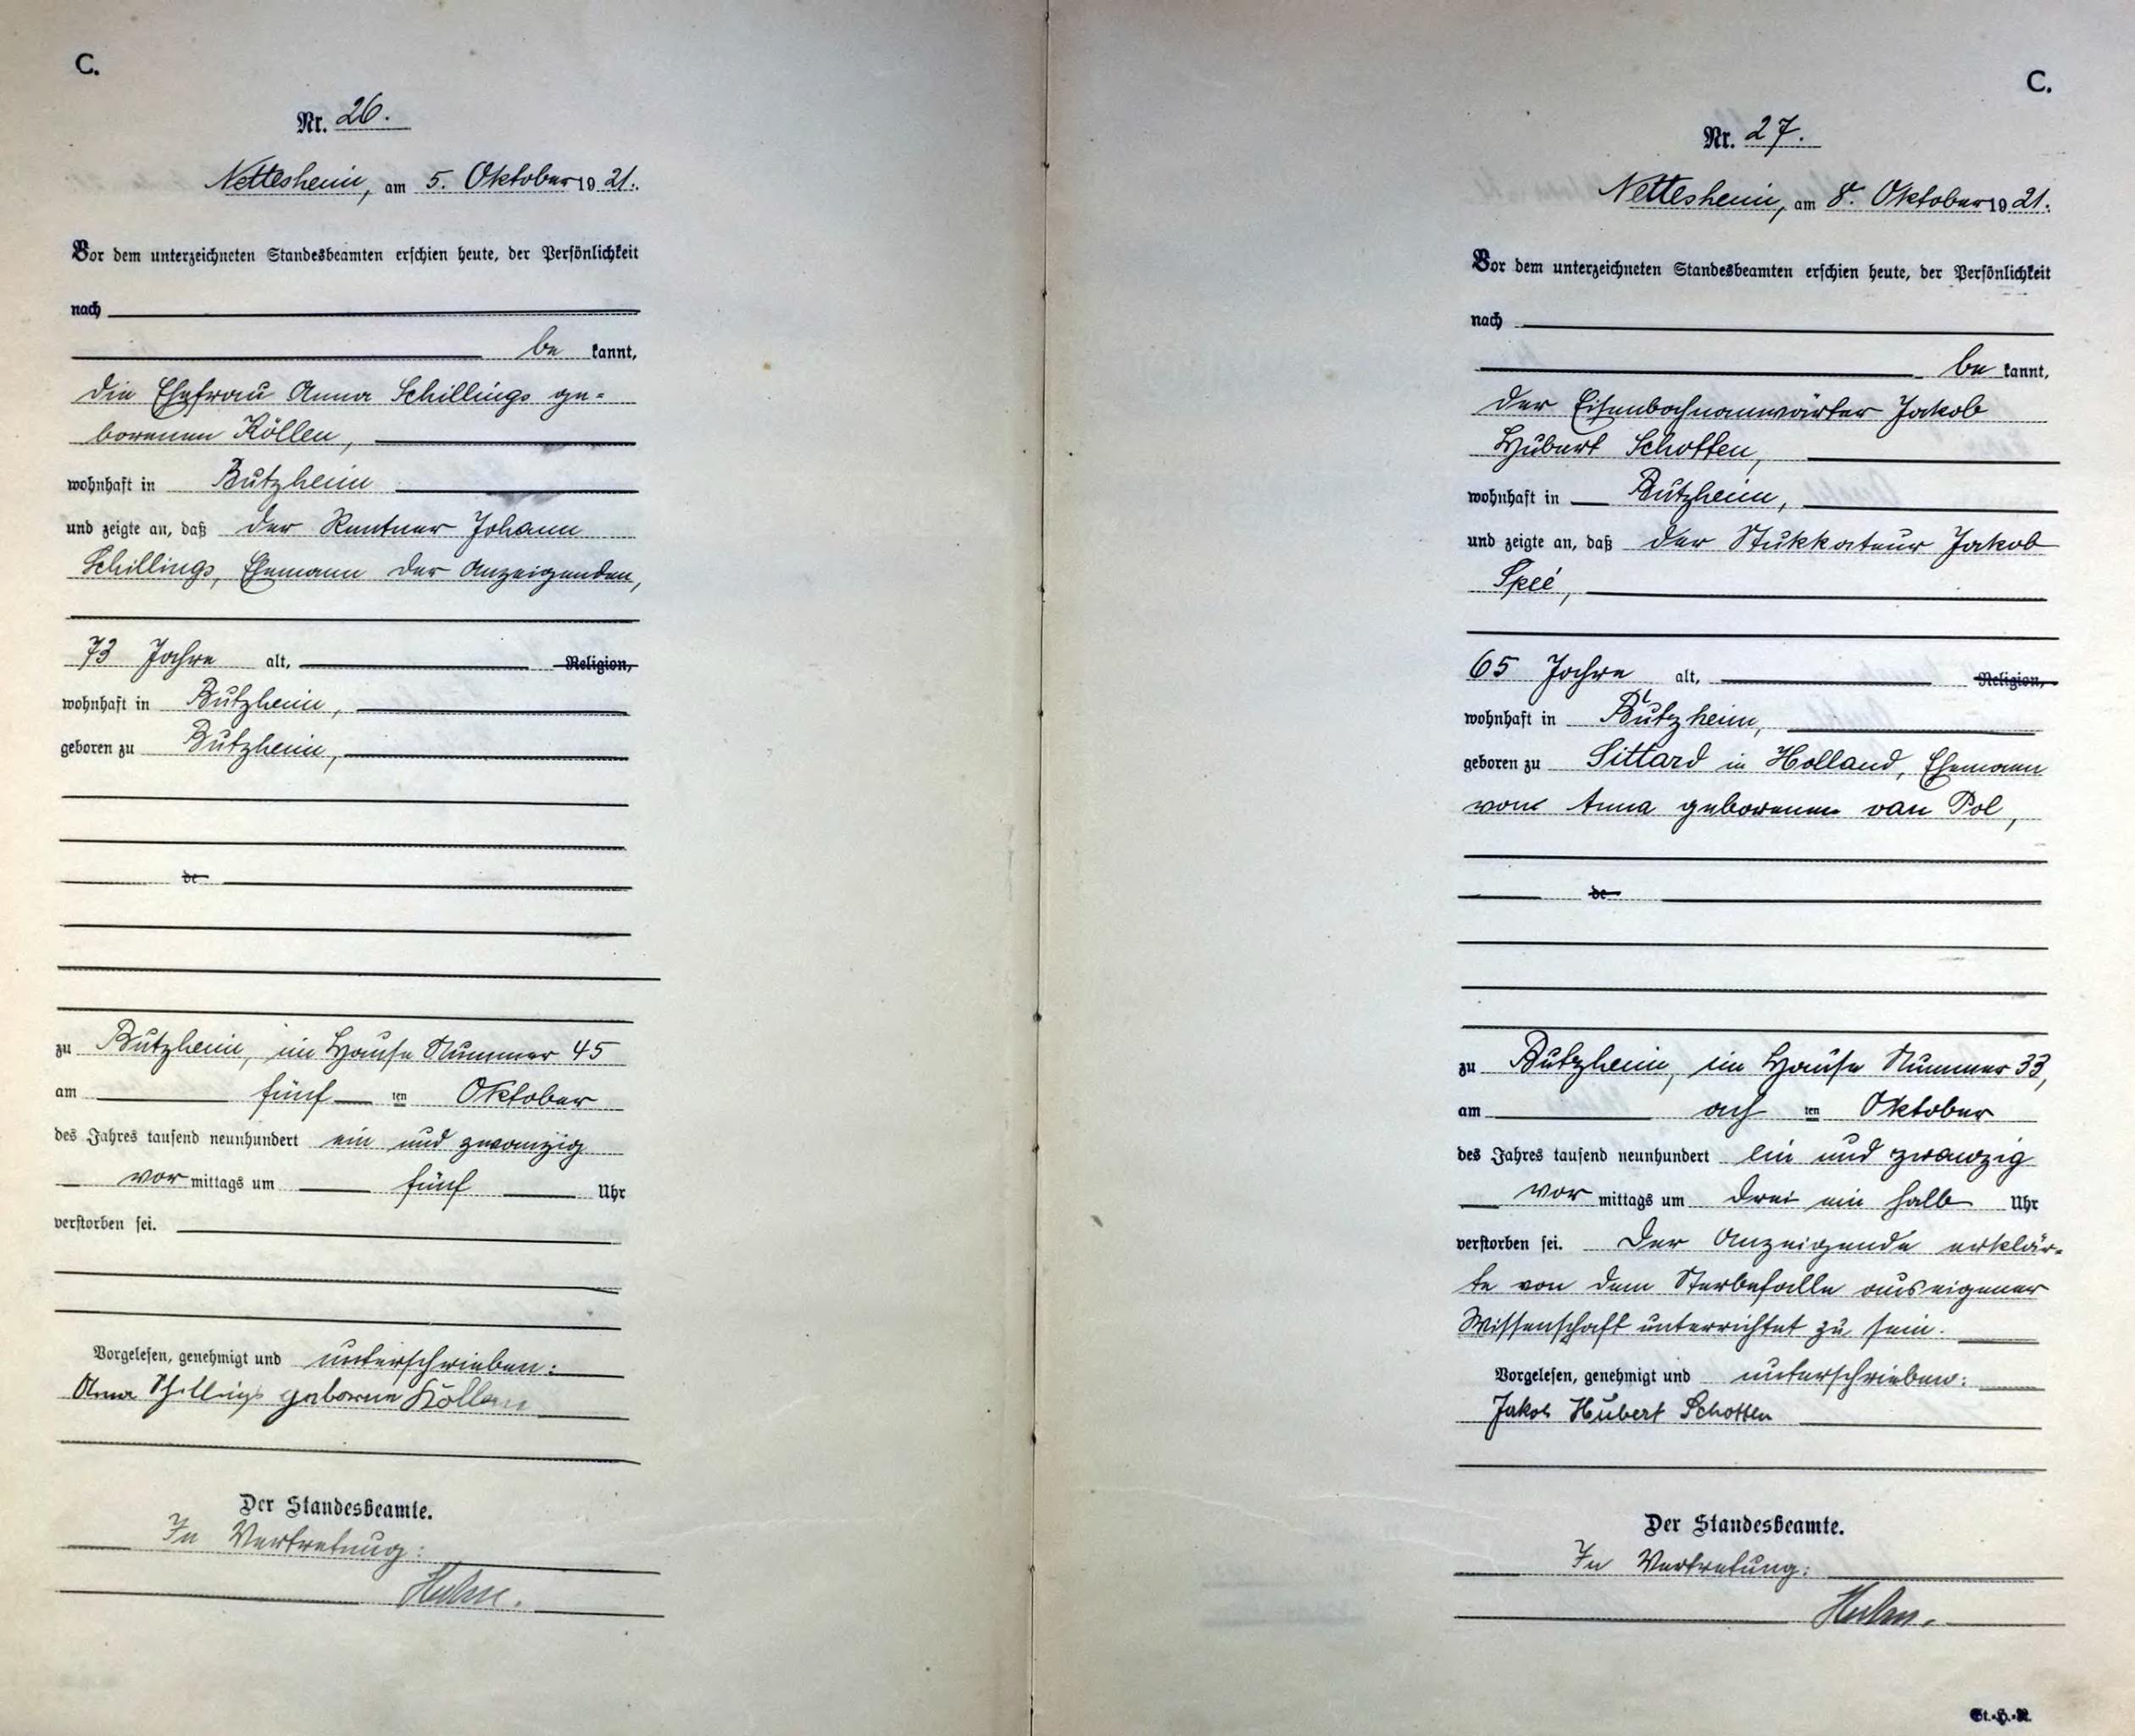 C.
Nr. 26.
Nettesheim, am 5. Oktober 1921.
Vor dem unterzeichneten Standesbeamten erschien heute, der Persönlichkeit
nach
be kannt,
die Ehefrau Anna Schillings ge-
borenen Köllen,
wohnhaft in Butzheim
und zeigte an, daß der Rentner Johann
Schillings, Ehemann der Anzeigenden,
73 Jahre alt, Religion,
wohnhaft in Butzheim,
geboren zu Butzheim,
de
zu Butzheim, im Hause Nummer 45
am fünf ten Oktober
des Jahres tausend neunhundert ein und zwanzig
vor mittags um fünf Uhr
verstorben sei.
Vorgelesen, genehmigt und unterschrieben:
Anna Schillings geborene Köllen
Der Standesbeamte.
In Vertretung:
C.
Nr. 27.
Nettesheim, am 8. Oktober 1921.
Vor dem unterzeichneten Standesbeamten erschien heute, der Persönlichkeit
nach
be kannt,
der Eisenbahnanwärter Jakob
Hubert Schotten,
wohnhaft in Butzheim,
und zeigte an, daß der Stukkateur Jakob
Speé,
65 Jahre alt, Religion,
wohnhaft in Butzheim,
geboren zu Sittard in Holland, Ehemann
von Anna geborenen van Pol,
de
zu Butzheim, im Hause Nummer 33,
am ach ten Oktober
des Jahres tausend neunhundert ein und zwanzig
vor mittags um drei ein halb Uhr
verstorben sei. Der Anzeigende erklär-
te von dem Sterbefalle aus eigener
Wissenschaft unterrichtet zu sein.
Vorgelesen, genehmigt und unterschrieben:
Jakob Hubert Schotten
Der Standesbeamte.
In Vertretung:
St.-H.-R.